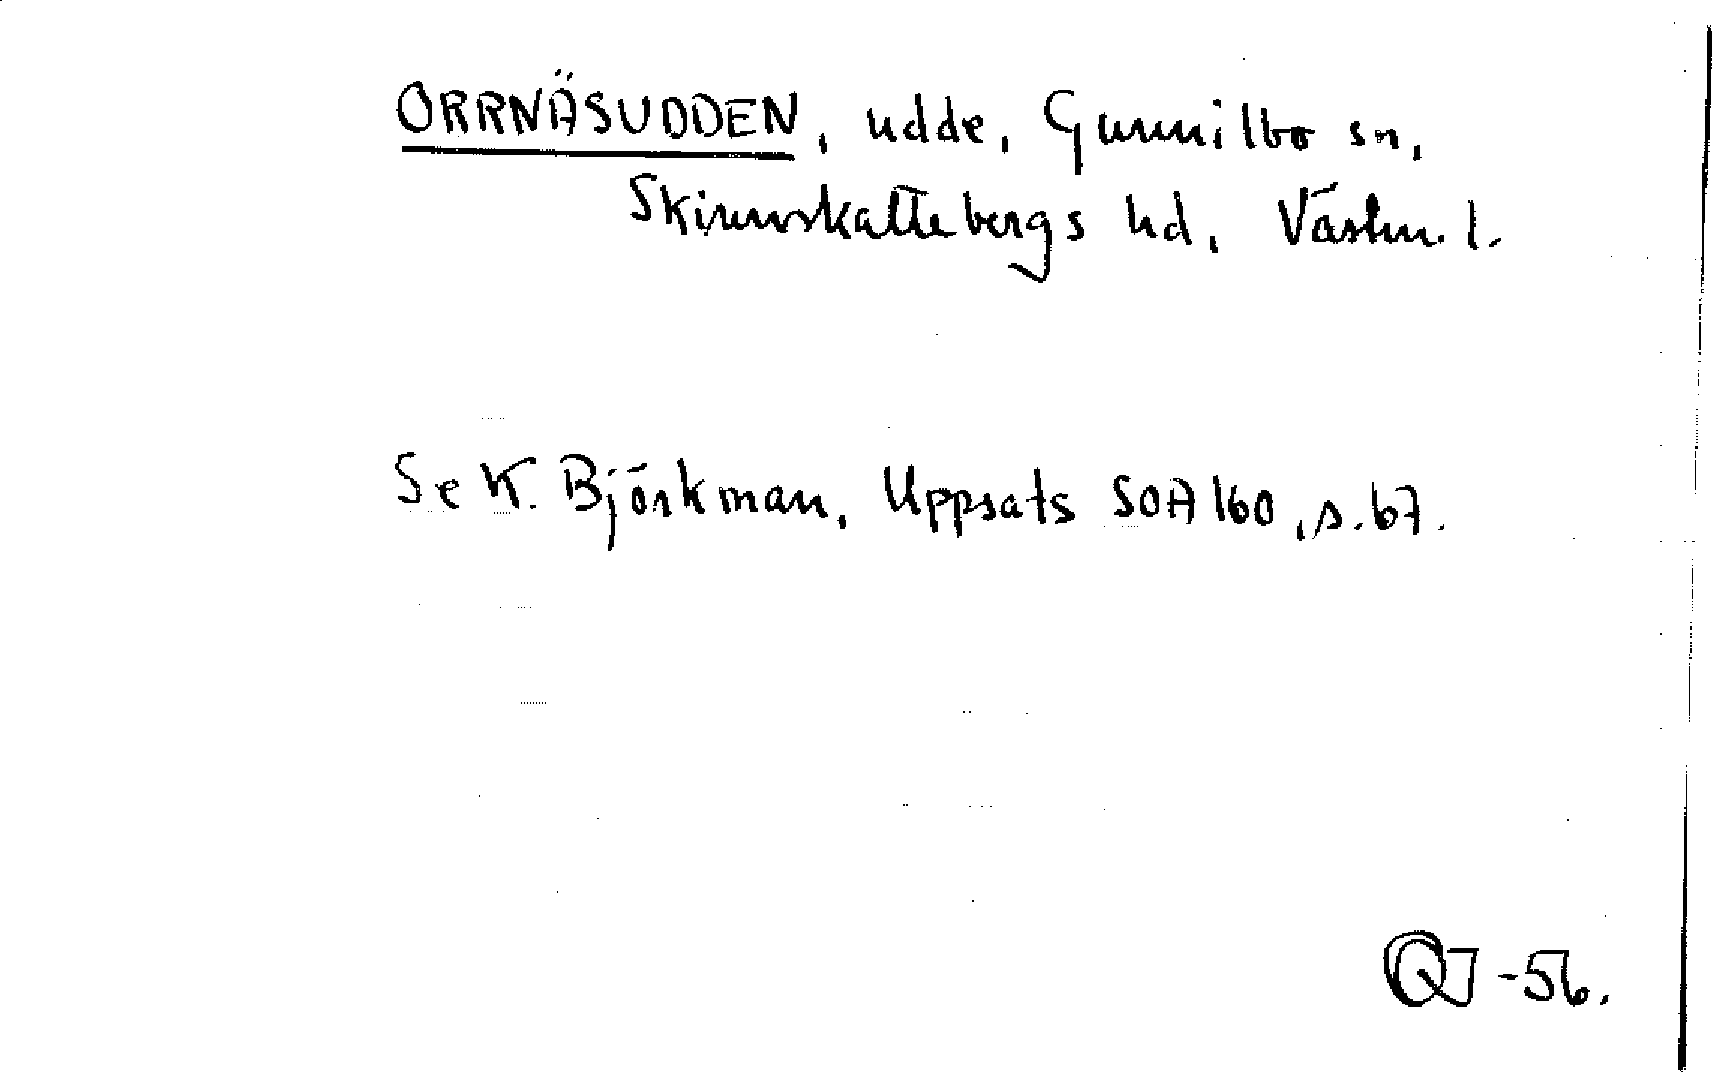 ORRNÄSUDDEN, udde, Gunnilbo sn,
Skinnskattebergs hd, Västm. l.
Se K. Björkman, Uppsats SOA 160, s. 67.
QJ -56.